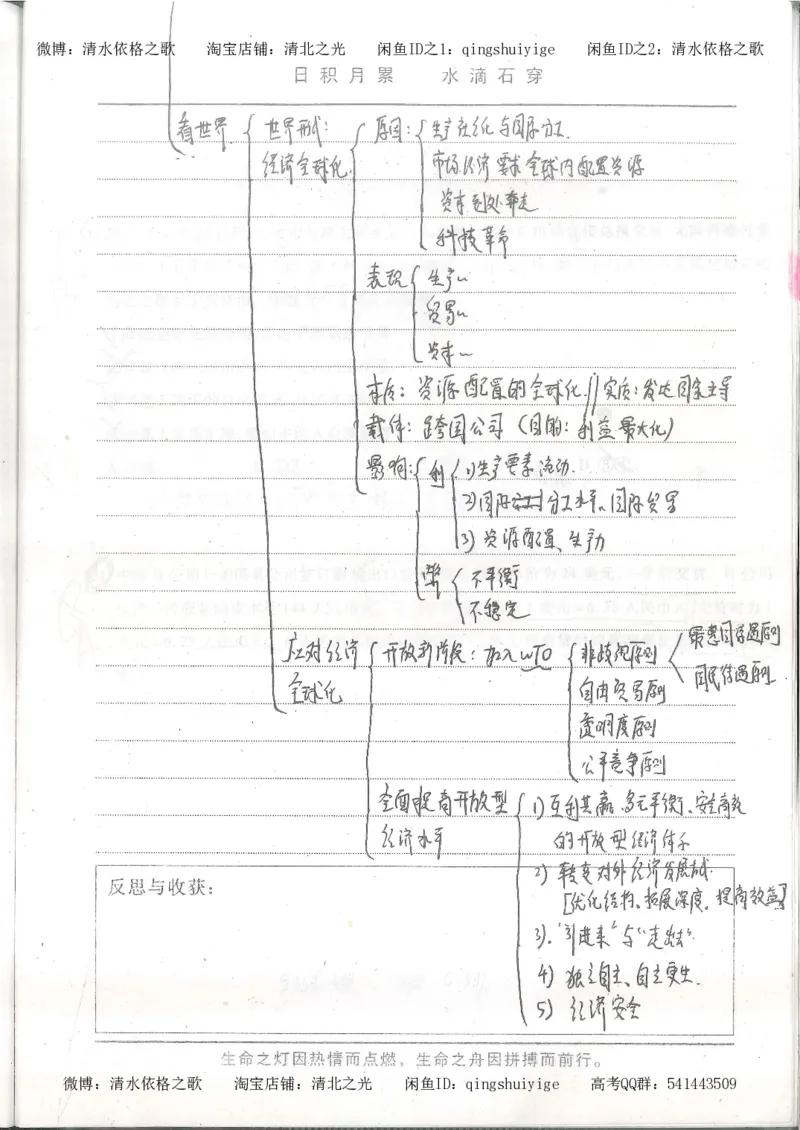 微博：清水依格之歌 淘宝店铺：清北之光 闲鱼ID之1：qingshuiyige 闲鱼ID之2：清水依格之歌
日积月累 水滴石穿
看世界 世界形式： 原因： 生产社会化与国际分工.
经济全球化 市场经济要求全球内配置资源
资本到处奔走
科技革命
表现 生产～
贸易～
资本～
本质：资源配置的全球化. 实质：发达国家主导
载体：跨国公司（目的：利益最大化）
影响： 利 1)生产要素流动.
2)国际分工水平、国际贸易
3)资源配置、生产力
弊 不平衡
不稳定
应对经济 开放新阶段：加入WTO 非歧视原则 最惠国待遇原则
全球化 国民待遇原则
自由贸易原则
透明度原则
公平竞争原则
全面提高开放型 1)互利共赢、多元平衡、安全高效
经济水平 的开放型经济体系
2)转变对外经济发展方式.
反思与收获：
[优化结构、拓展深度、提高效益]
3).“引进来”与“走出去”.
4)独立自主、自主更生.
5)经济安全
生命之灯因热情而点燃，生命之舟因拼搏而前行。
微博：清水依格之歌 淘宝店铺：清北之光 闲鱼ID：qingshuiyige 高考QQ群：541443509